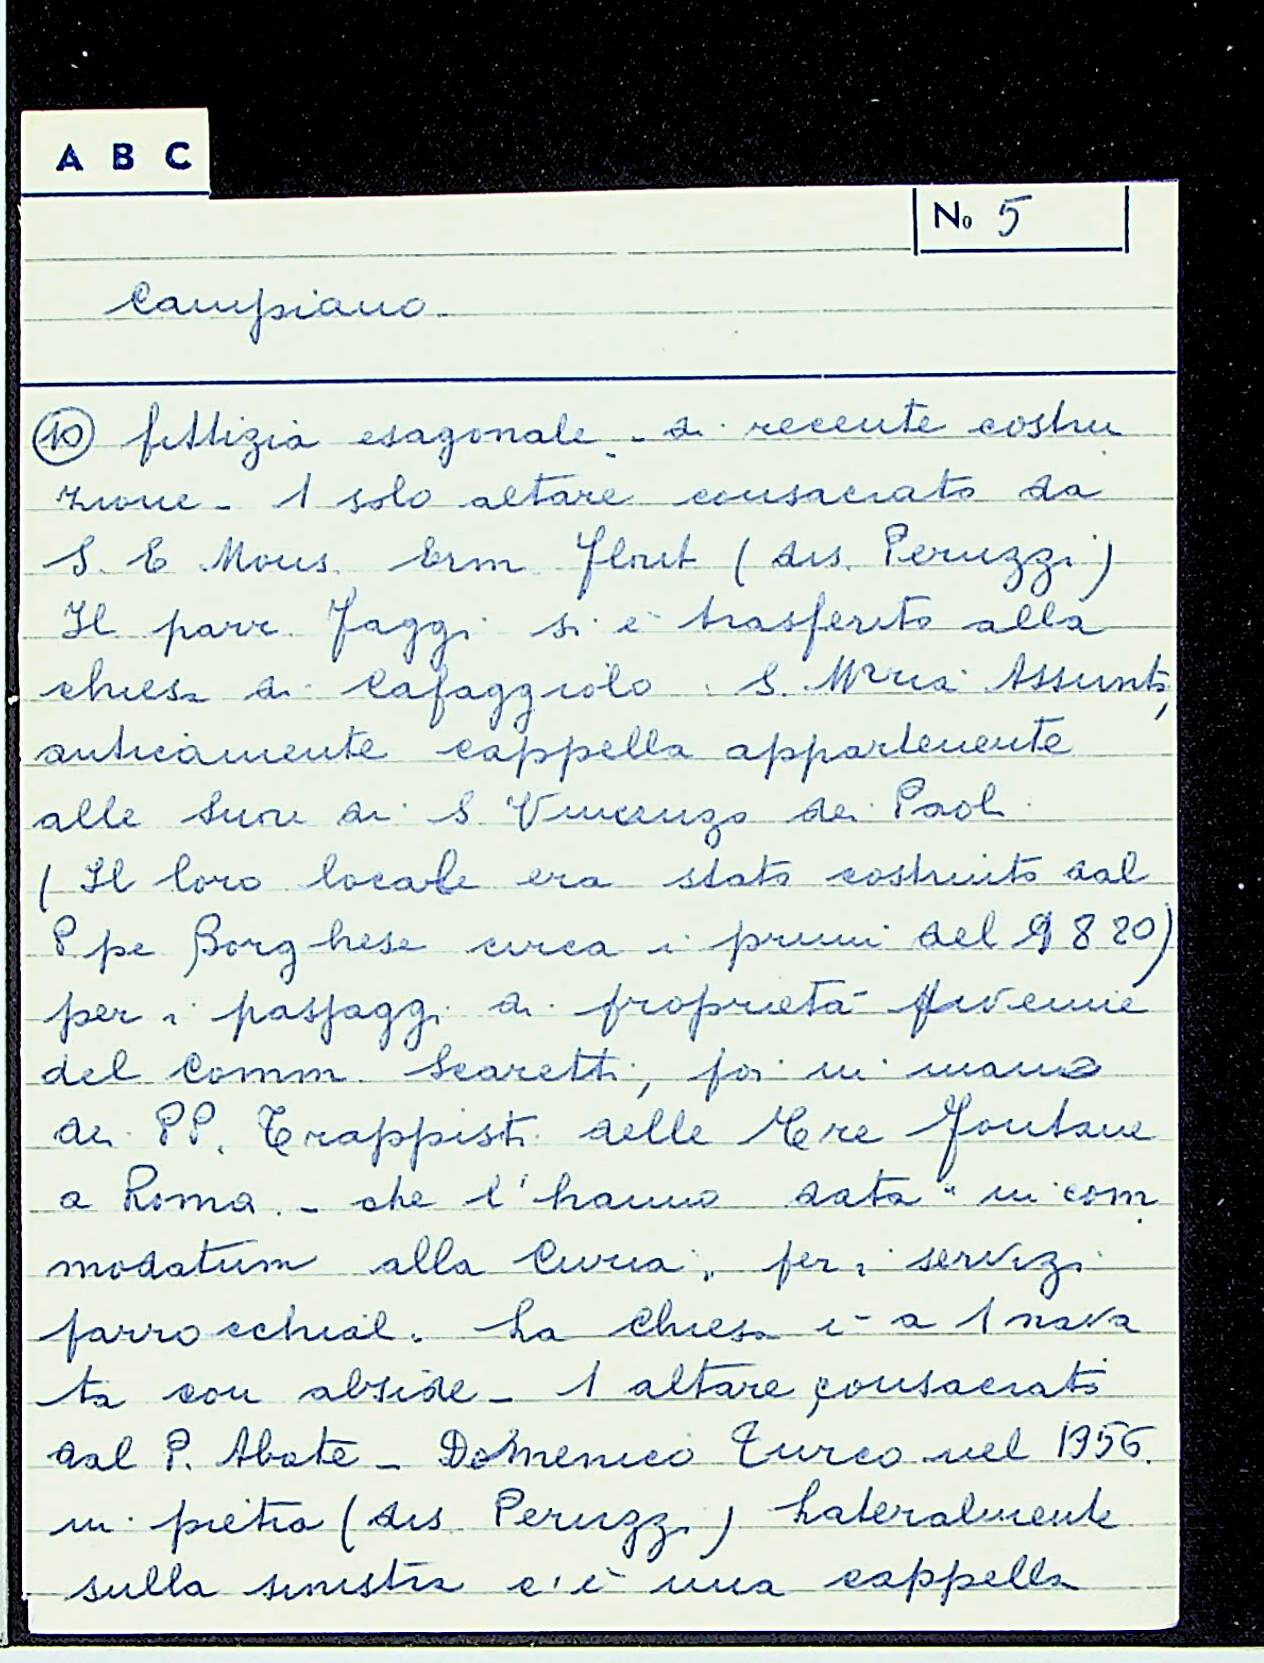 A B C
No 5
Campiano.
10 fittizia esagonale - di recente costru
zione - 1 solo altare consacrato da
S. E Mons. Erm Florit (dis. Peruzzi)
Il parr. Faggi si è trasferito alla
chiesa di Cafaggiolo. S. Maria Assunta,
anticamente cappella appartenente
alle Suore di S Vincenzo de Paoli.
(Il loro locale era stato costruito dal
P pe Borghese circa i primi del 9820)
per i passaggi di proprietà divenne
del Comm. Scaretti, poi in mano
dei PP. Trappisti delle Tre Fontane
a Roma. - che l'hanno data " in com
modatum alla Curia " per i servizi
parrocchial. La Chiesa è a 1 nava
ta con abside - 1 altare consacrato
dal P. Abate - Domenico Turco nel 1956.
in pietra (dis Peruzzi) Lateralmente
sulla sinistra c'è una cappella